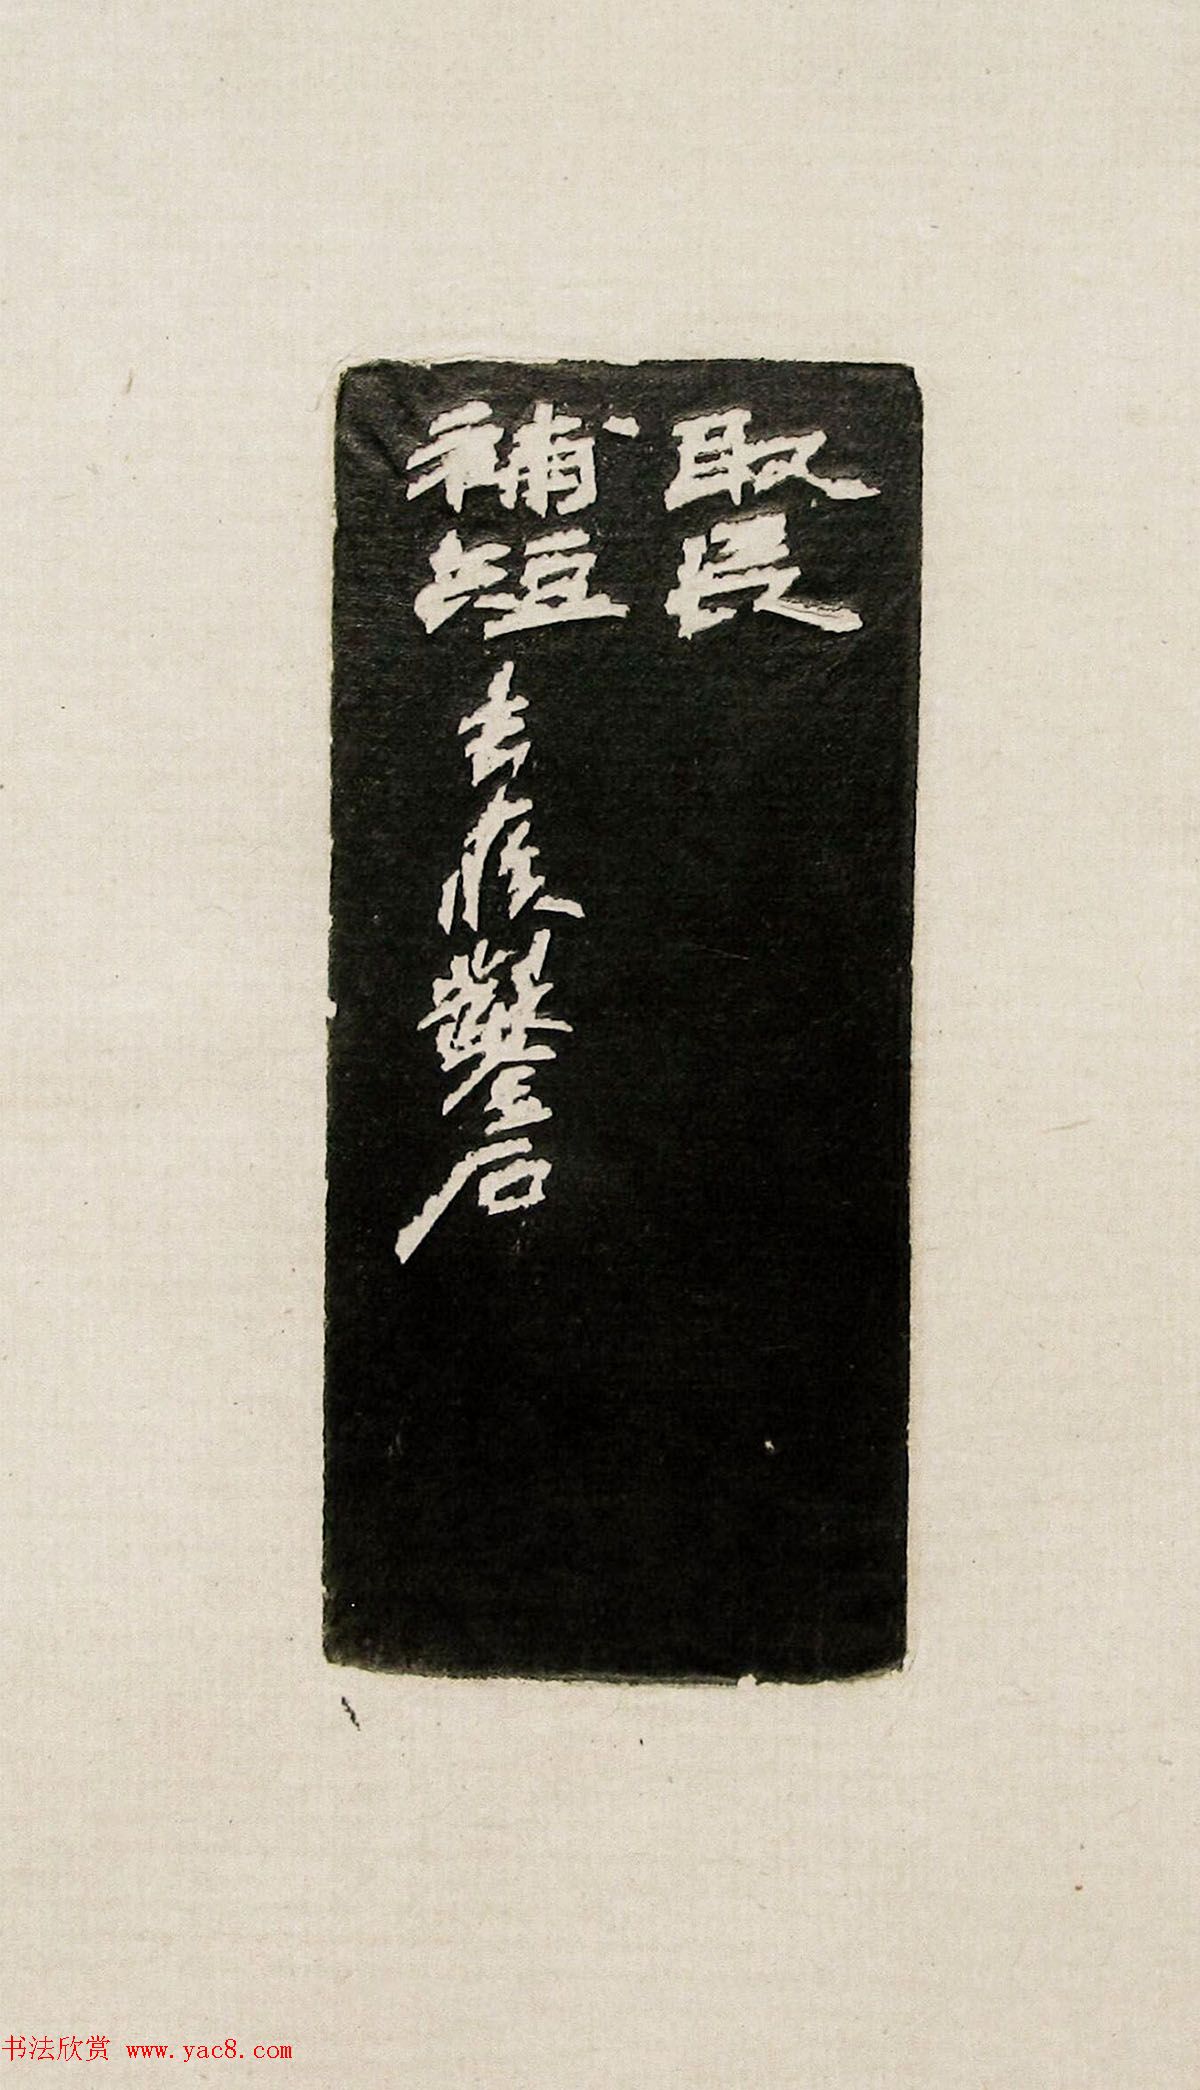 取長
補短
去疾鑿石
书法欣赏 www.yac8.com